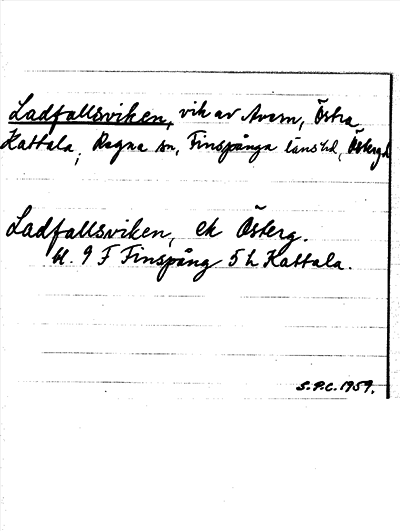 Ladfallsviken, vik av Avern, Östra
Kattala, Regna sn, Finspånga länshd, Östergl
Ladfallsviken, ek Österg.
bl. 9 F Finspång 5 h Kattala.
S.P.C. 1959.